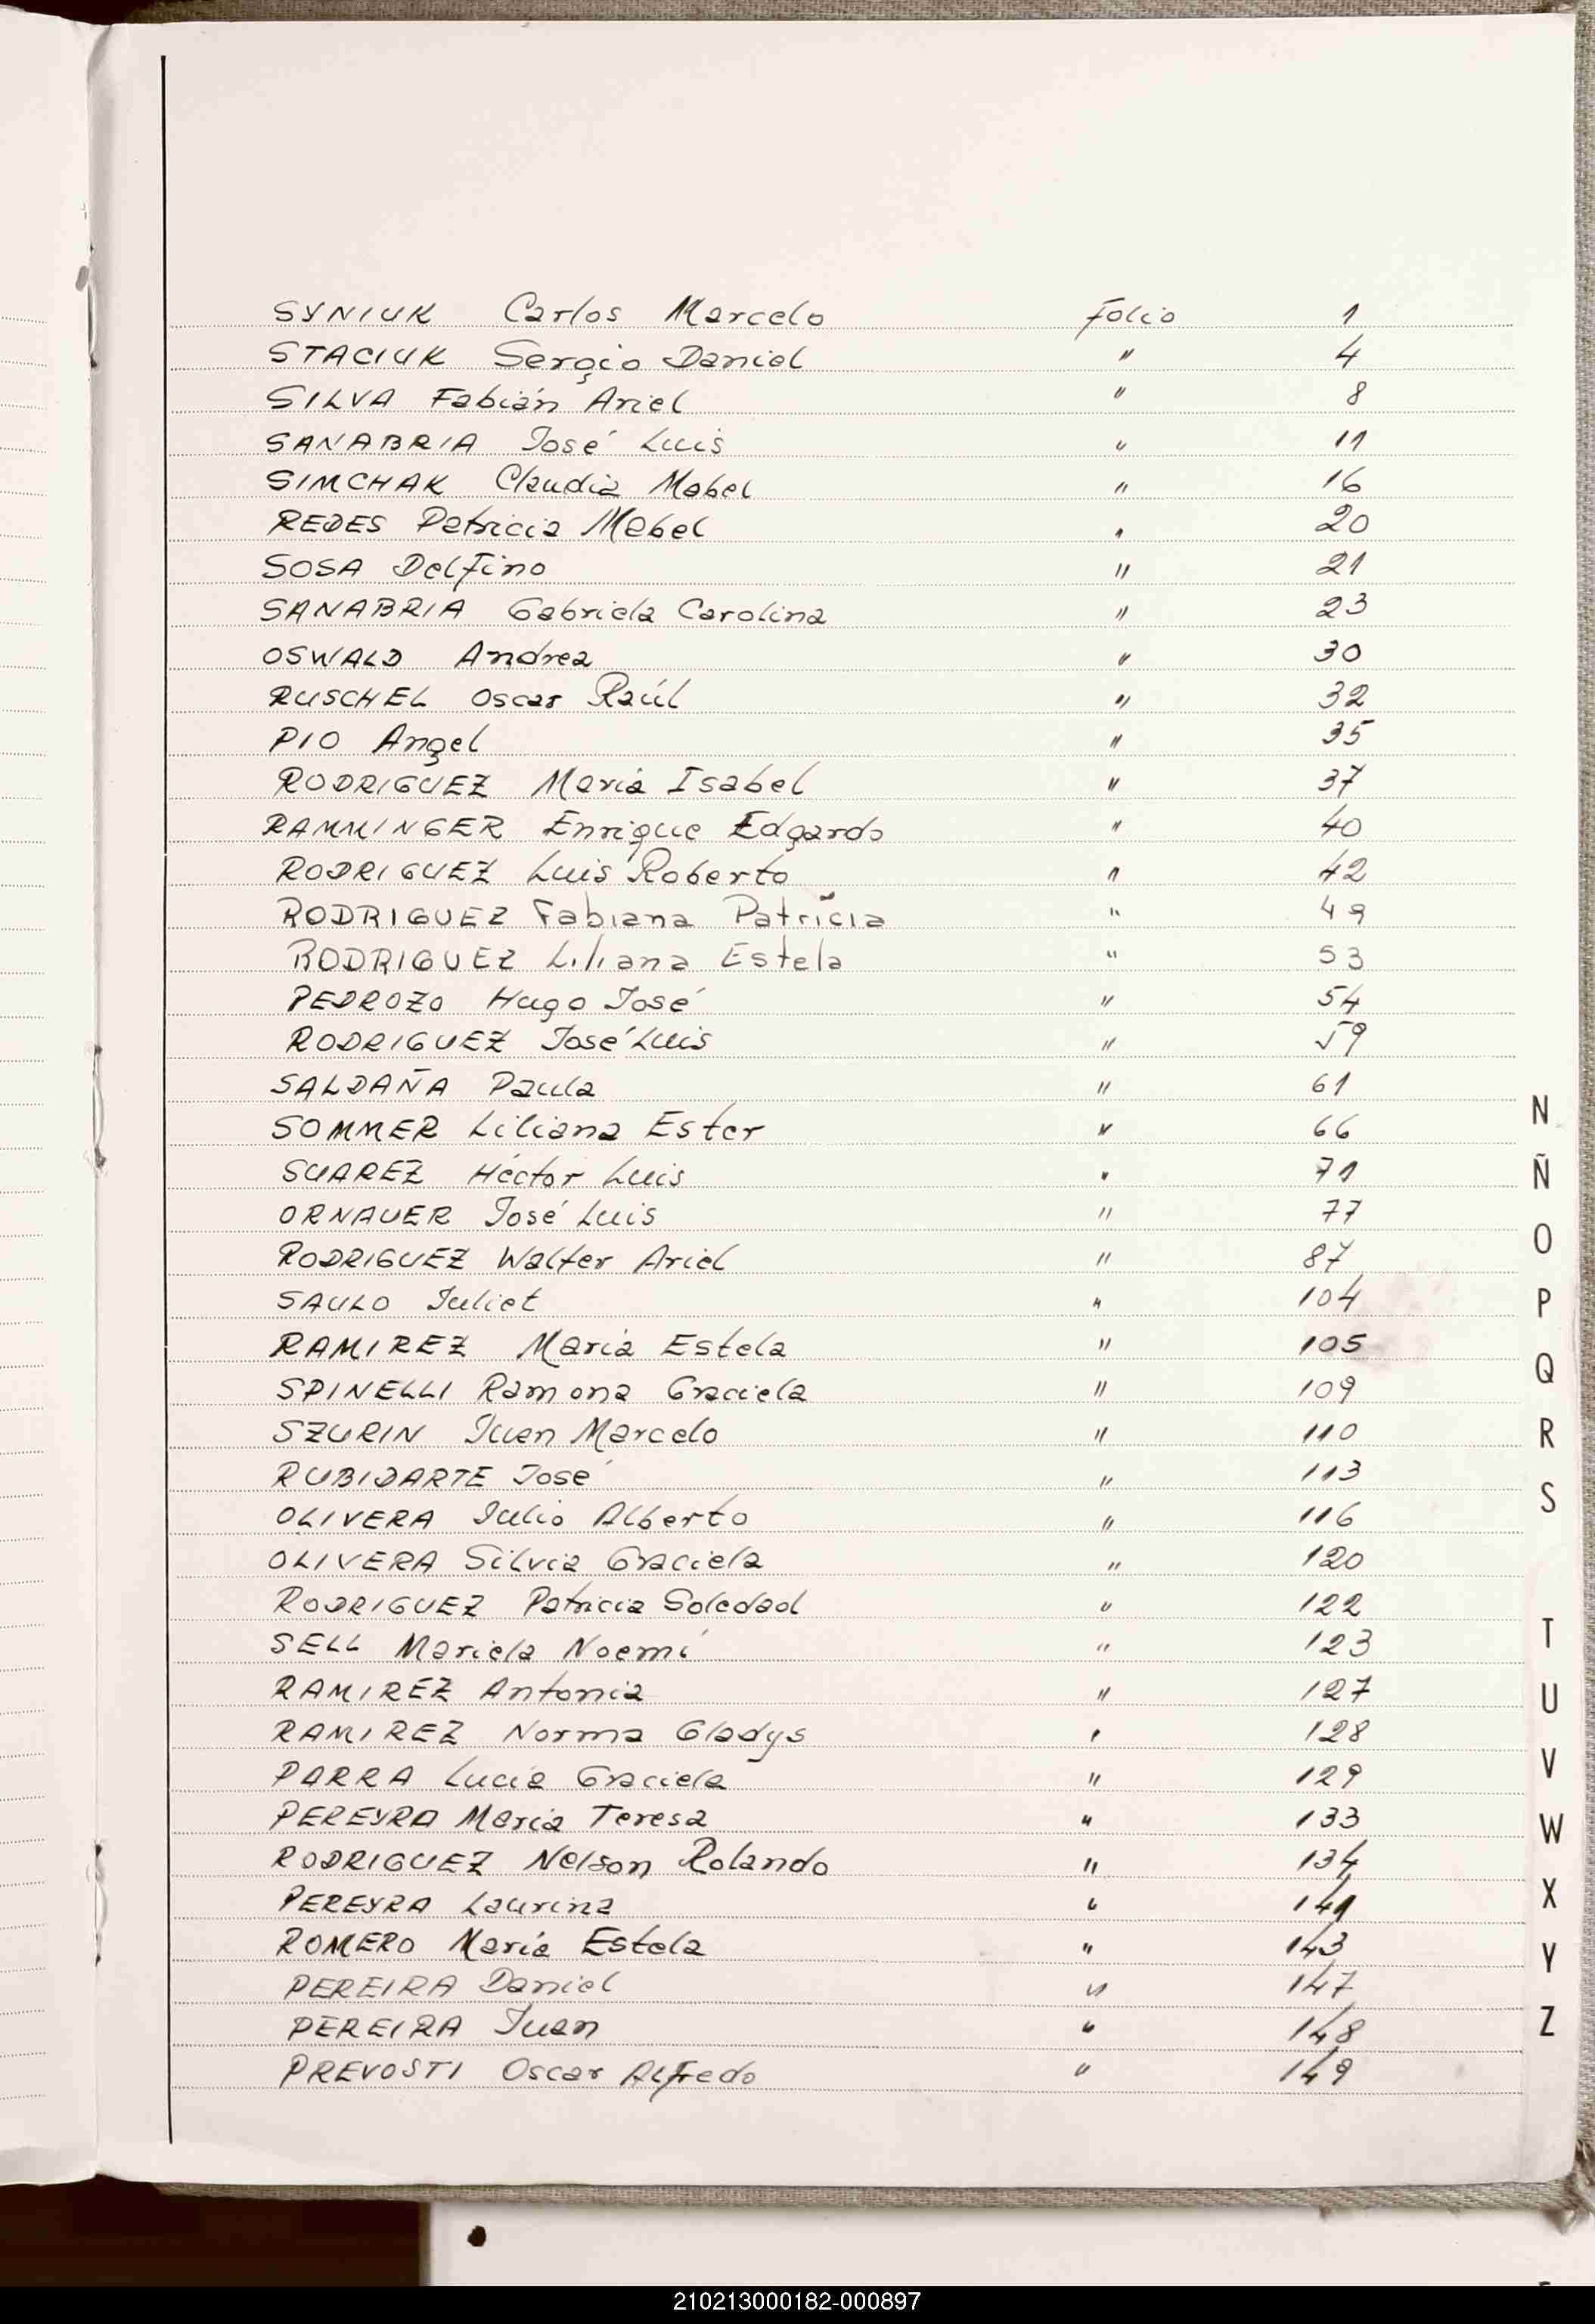 SYNIUK Carlos Marcelo Folio 1
STACIUK Sergio Daniel " 4
SILVA Fabián Ariel " 8
SANABRIA José Luis " 11
SIMCHAK Claudia Mabel " 16
REDES Patricia Mabel " 20
SOSA Delfino " 21
SANABRIA Gabriela Carolina " 23
OSWALD Andrea " 30
RUSCHEL Oscar Raúl " 32
PIO Angel " 35
RODRIGUEZ María Isabel " 37
RAMMINGER Enrique Edgardo " 40
RODRIGUEZ Luis Roberto " 42
RODRIGUEZ Fabiana Patricia " 49
RODRIGUEZ Liliana Estela " 53
PEDROZO Hugo José " 54
RODRIGUEZ José Luis " 59
SALDAÑA Paula " 61
SOMMER Liliana Ester " 66
SUAREZ Héctor Luis " 71
ORNAUER José Luis " 77
RODRIGUEZ Walter Ariel " 87
SAULO Juliet " 104
RAMIREZ María Estela " 105
SPINELLI Ramona Graciela " 109
SZURIN Juan Marcelo " 110
RUBIDARTE José " 113
OLIVERA Julio Alberto " 116
OLIVERA Silvia Graciela " 120
RODRIGUEZ Patricia Soledad " 122
SELL Mariela Noemí " 123
RAMIREZ Antonia " 127
RAMIREZ Norma Gladys " 128
PARRA Lucía Graciela " 129
PEREYRA María Teresa " 133
RODRIGUEZ Nelson Rolando " 134
PEREYRA Laurina " 141
ROMERO María Estela " 143
PEREIRA Daniel " 147
PEREIRA Juan " 148
PREVOSTI Oscar Alfredo " 149
N
Ñ
O
P
Q
R
S
T
U
V
W
X
Y
Z
210213000182-000897